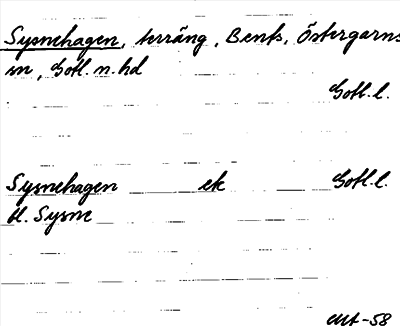 Sysnehagen, terräng, Bents, Östergarns
sn, Gotl. n. hd
Gotl. l.
Sysnehagen ek Gotl. l.
bl. Sysne
Mt -58